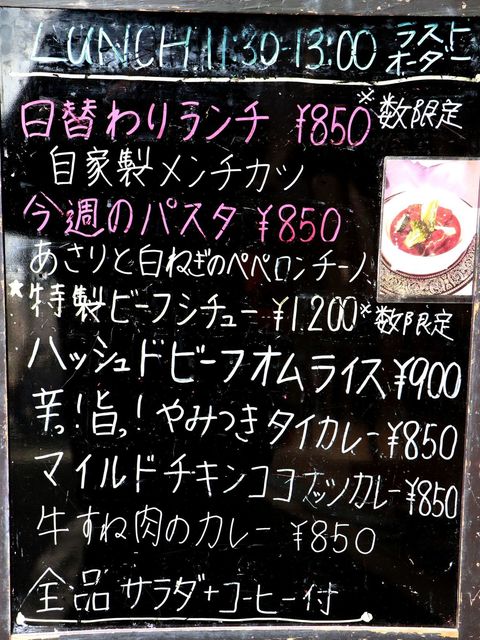 LUNCH 11:30-13:00 ラストオーダー
日替わりランチ ¥850 ※数限定
自家製メンチカツ
今週のパスタ ¥850
あさりと白ねぎのペペロンチーノ
★特製ビーフシチュー ¥1.200 ※数限定
ハッシュドビーフオムライス ¥900
辛っ!旨っ!やみつきタイカレー ¥850
マイルドチキンココナッツカレー ¥850
牛すね肉のカレー ¥850
全品 サラダ+コーヒー付